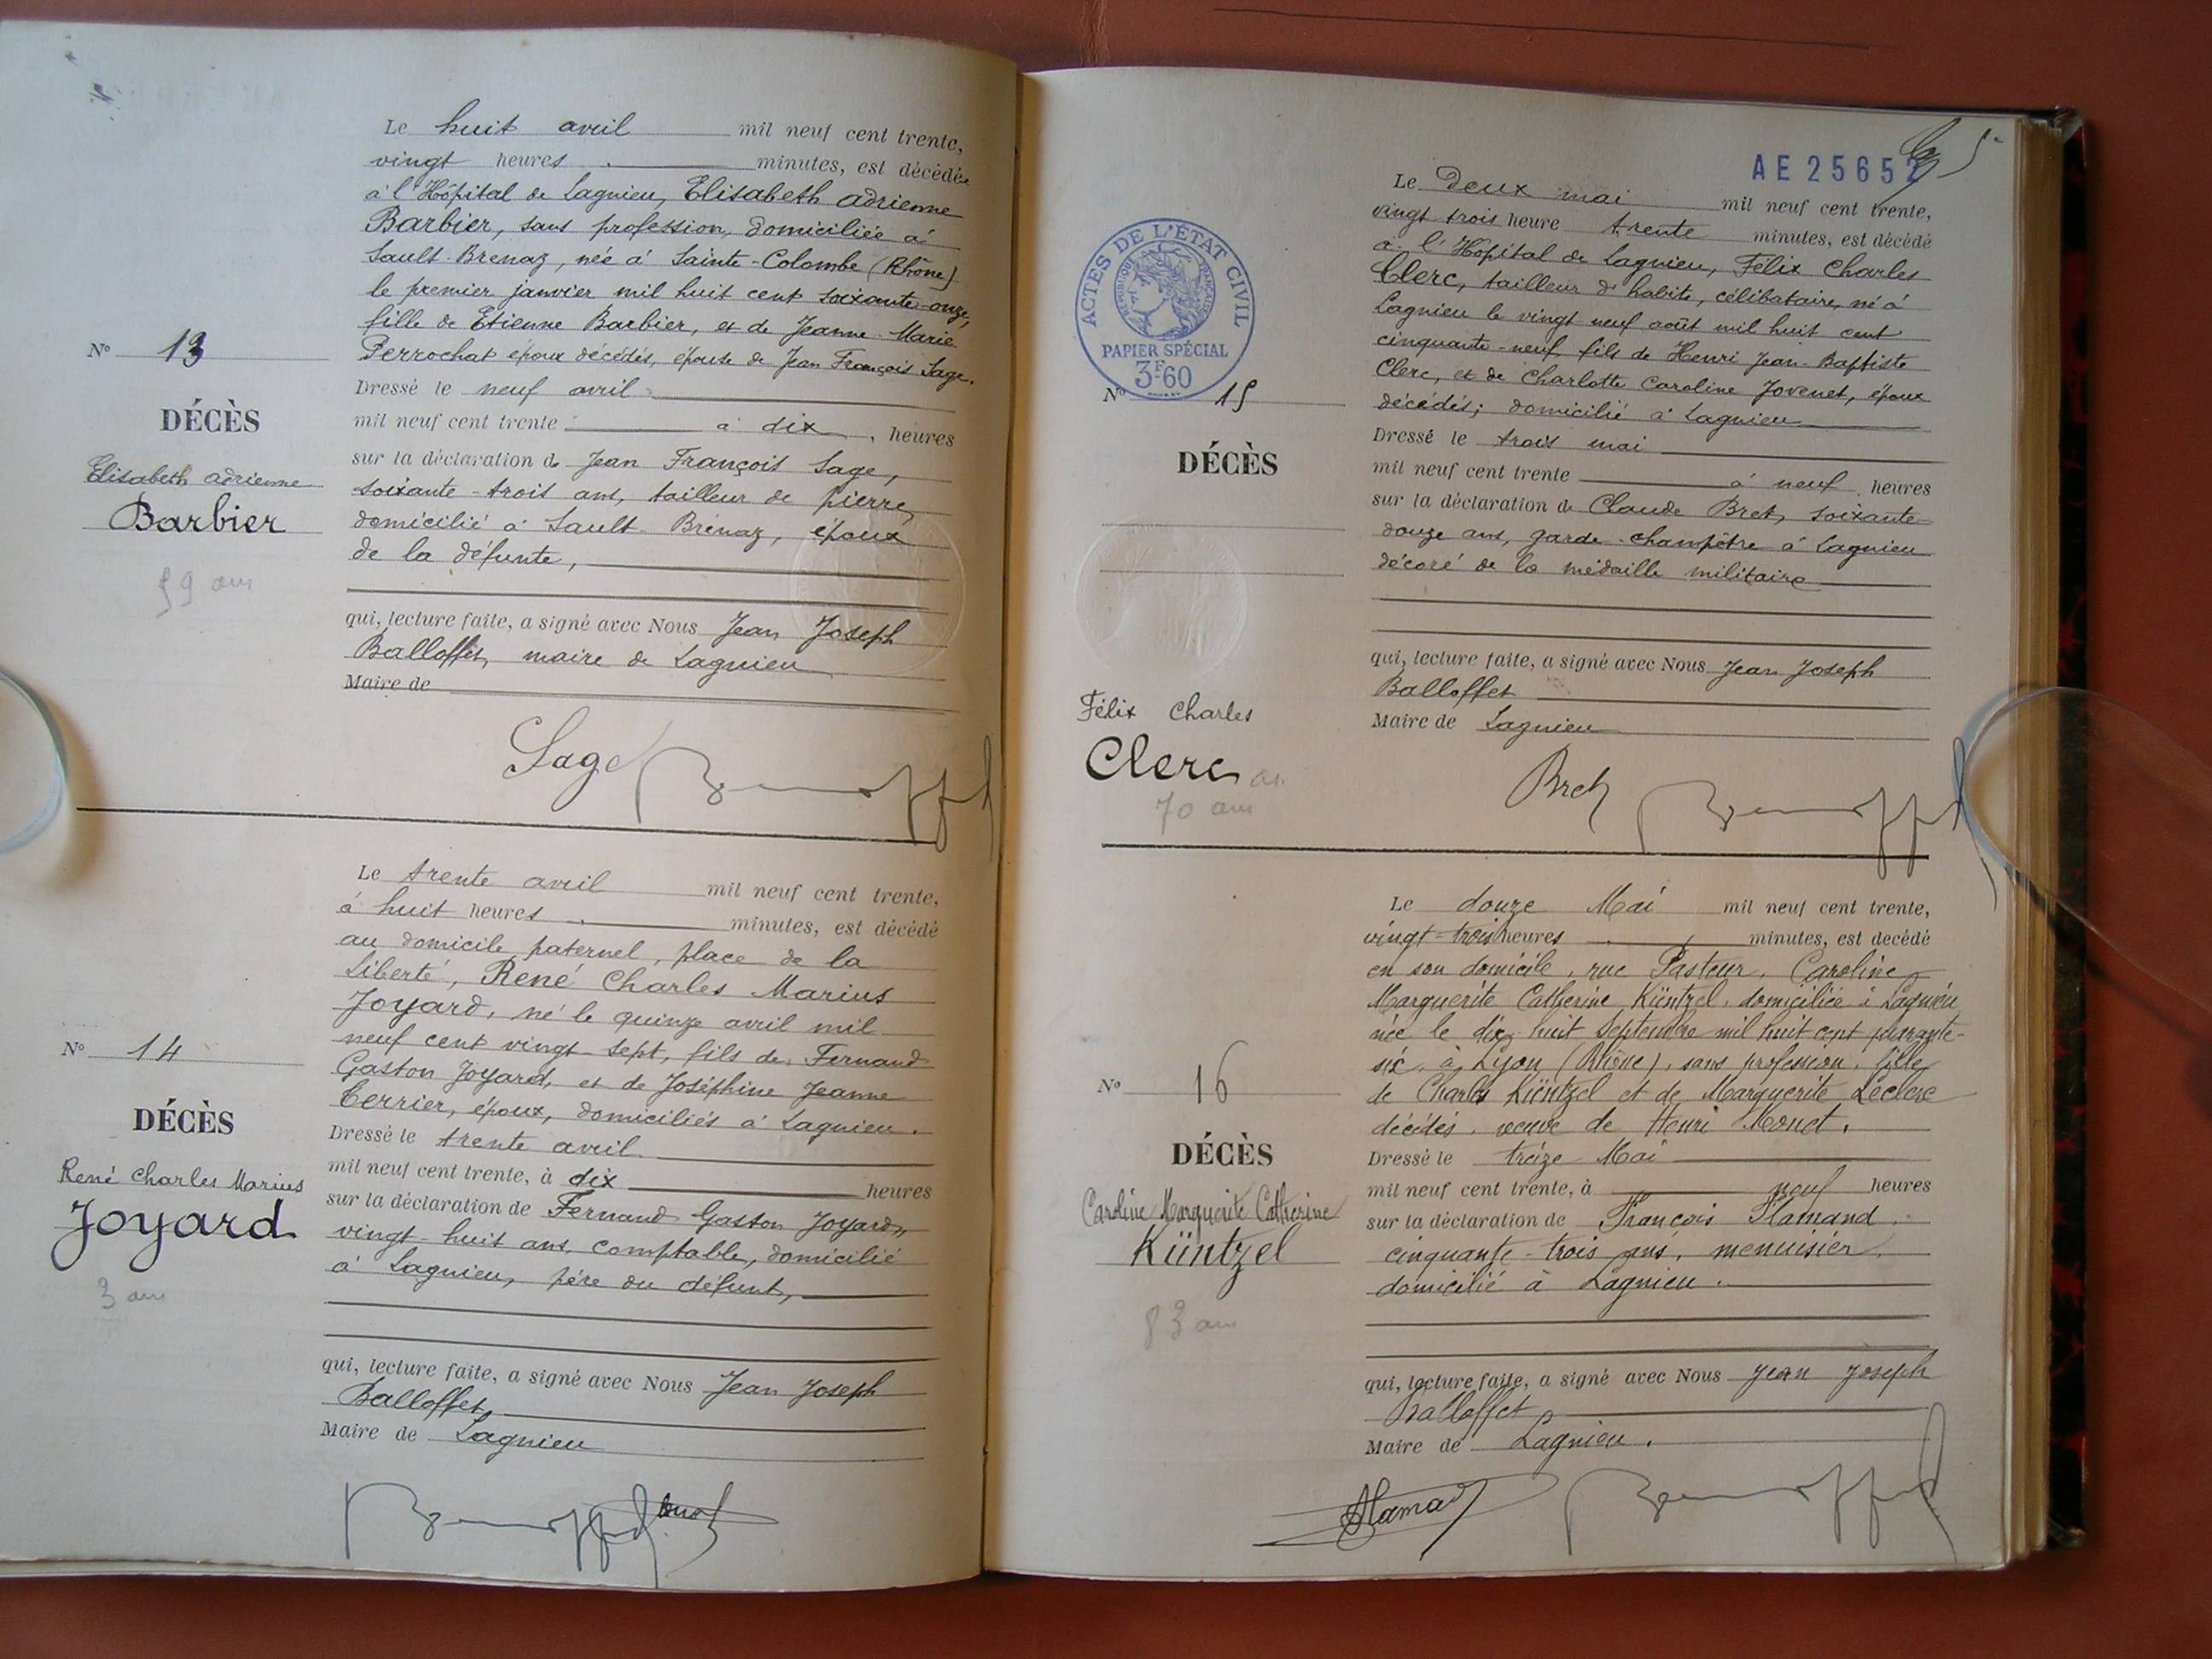 Le huit avril mil neuf cent trente,
vingt heures minutes, est décédée
à l'Hôpital de Lagnieu, Elisabeth Adrienne
Barbier, sans profession, domiciliée à
Sault-Brenaz, née à Sainte-Colombe (Rhône)
le premier janvier mil huit cent soixante-onze,
fille de Etienne Barbier, et de Jeanne-Marie
Perrochat époux décédés, épouse de Jean François Sage.
Nº 13
DÉCÈS
Elisabeth Adrienne
Barbier
59 ans
Dressé le neuf avril
mil neuf cent trente à dix, heures
sur la déclaration de Jean François Sage,
soixante-trois ans, tailleur de pierre,
domicilié à Sault-Brénaz, époux
de la défunte,
qui, lecture faite, a signé avec Nous Jean Joseph
Balloffet, maire de Lagnieu
Maire de
Sage
Le trente avril mil neuf cent trente,
à huit heures minutes, est décédé
au domicile paternel, place de la
Liberté, René Charles Marius
Joyard, né le quinze avril mil
neuf cent vingt-sept, fils de Fernand
Gaston Joyard, et de Joséphine Jeanne
Terrier, époux, domiciliés à Lagnieu.
Nº 14
DÉCÈS
René Charles Marius
Joyard
3 ans
Dressé le trente avril
mil neuf cent trente, à dix heures
sur la déclaration de Fernand Gaston Joyard,
vingt-huit ans, comptable, domicilié
à Lagnieu, père du défunt,
qui, lecture faite, a signé avec Nous Jean Joseph
Balloffet,
Maire de Lagnieu
AE 25652
5
ACTES DE L'ÉTAT CIVIL
RÉPUBLIQUE FRANÇAISE
PAPIER SPÉCIAL
3F60
Le Deux mai mil neuf cent trente,
vingt trois heure trente minutes, est décédé
à l'Hôpital de Lagnieu, Félix Charles
Clerc, tailleur d'habits, célibataire, né à
Lagnieu le vingt neuf août mil huit cent
cinquante-neuf, fils de Henri Jean-Baptiste
Clerc, et de Charlotte Caroline Jovenet, époux
décédés; domicilié à Lagnieu
Nº 15
DÉCÈS
Félix Charles
Clerc
70 ans
Dressé le trois mai
mil neuf cent trente à neuf heures
sur la déclaration de Claude Bret, soixante-
douze ans, garde-champêtre à Lagnieu
décoré de la médaille militaire
qui, lecture faite, a signé avec Nous Jean Joseph
Balloffet
Maire de Lagnieu
Bret
Le douze Mai mil neuf cent trente,
vingt-trois heures minutes, est decédé
en son domicile, rue Pasteur, Caroline
Marguerite Catherine Küntzel, domiciliée à Lagnieu
née le dix huit Septembre mil huit cent quarante-
six, à Lyon (Rhône), sans profession, fille
de Charles Küntzel et de Marguerite Leclerc
décédés, veuve de Henri Monet.
Nº 16
DÉCÈS
Caroline Marguerite Catherine
Küntzel
83 ans
Dressé le treize Mai
mil neuf cent trente, à neuf heures
sur la déclaration de François Flamand,
cinquante-trois ans, menuisier,
domicilié à Lagnieu.
qui, lecture faite, a signé avec Nous Jean Joseph
Balloffet
Maire de Lagnieu.
Flamand